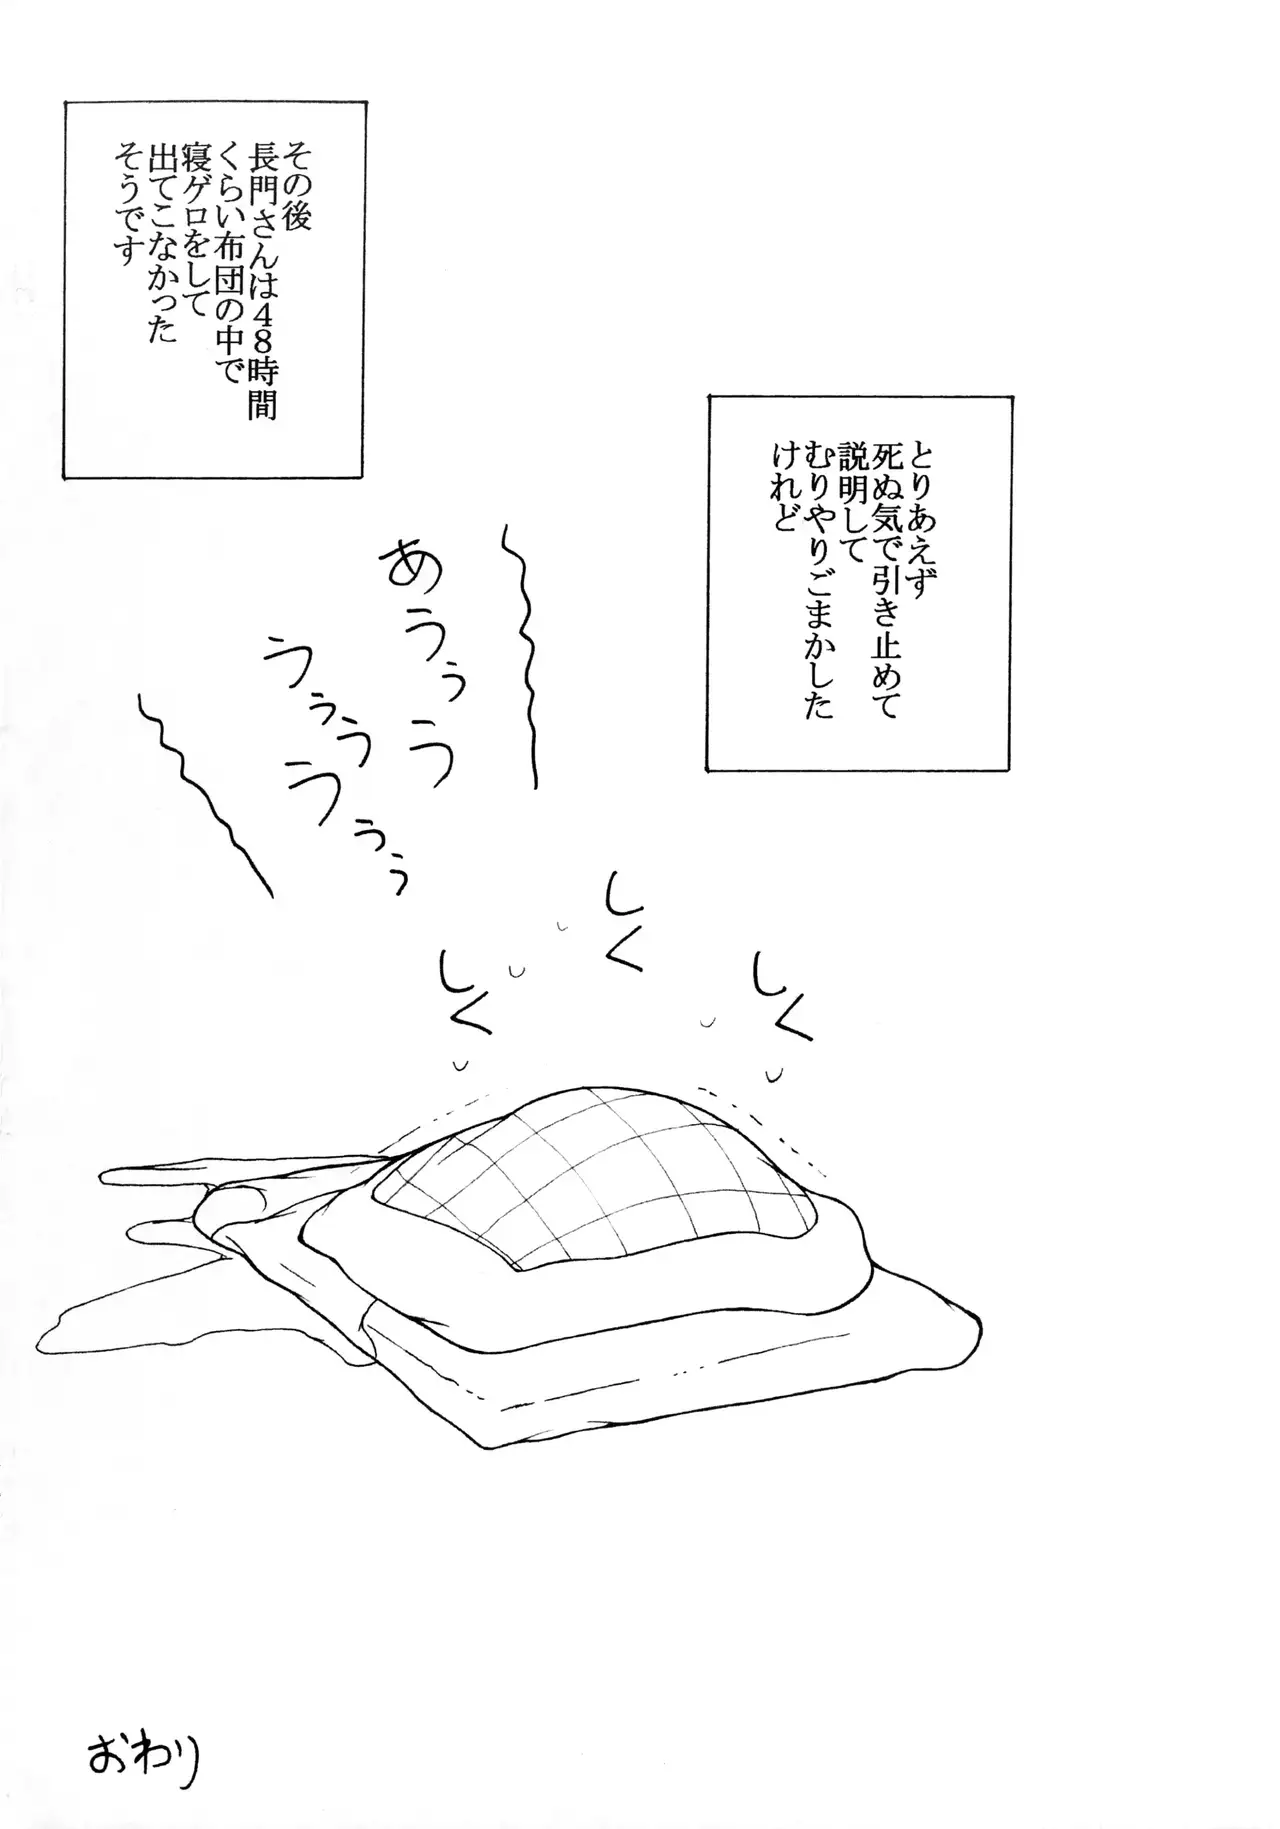 とりあえず
死ぬ気で引き止めて
説明して
むりやりごまかした
けれど
その後
長門さんは４８時間
くらい布団の中で
寝ゲロをして
出てこなかった
そうです
あうぅう
うぅぅうぅぅ
しく
しく
しく
おわり